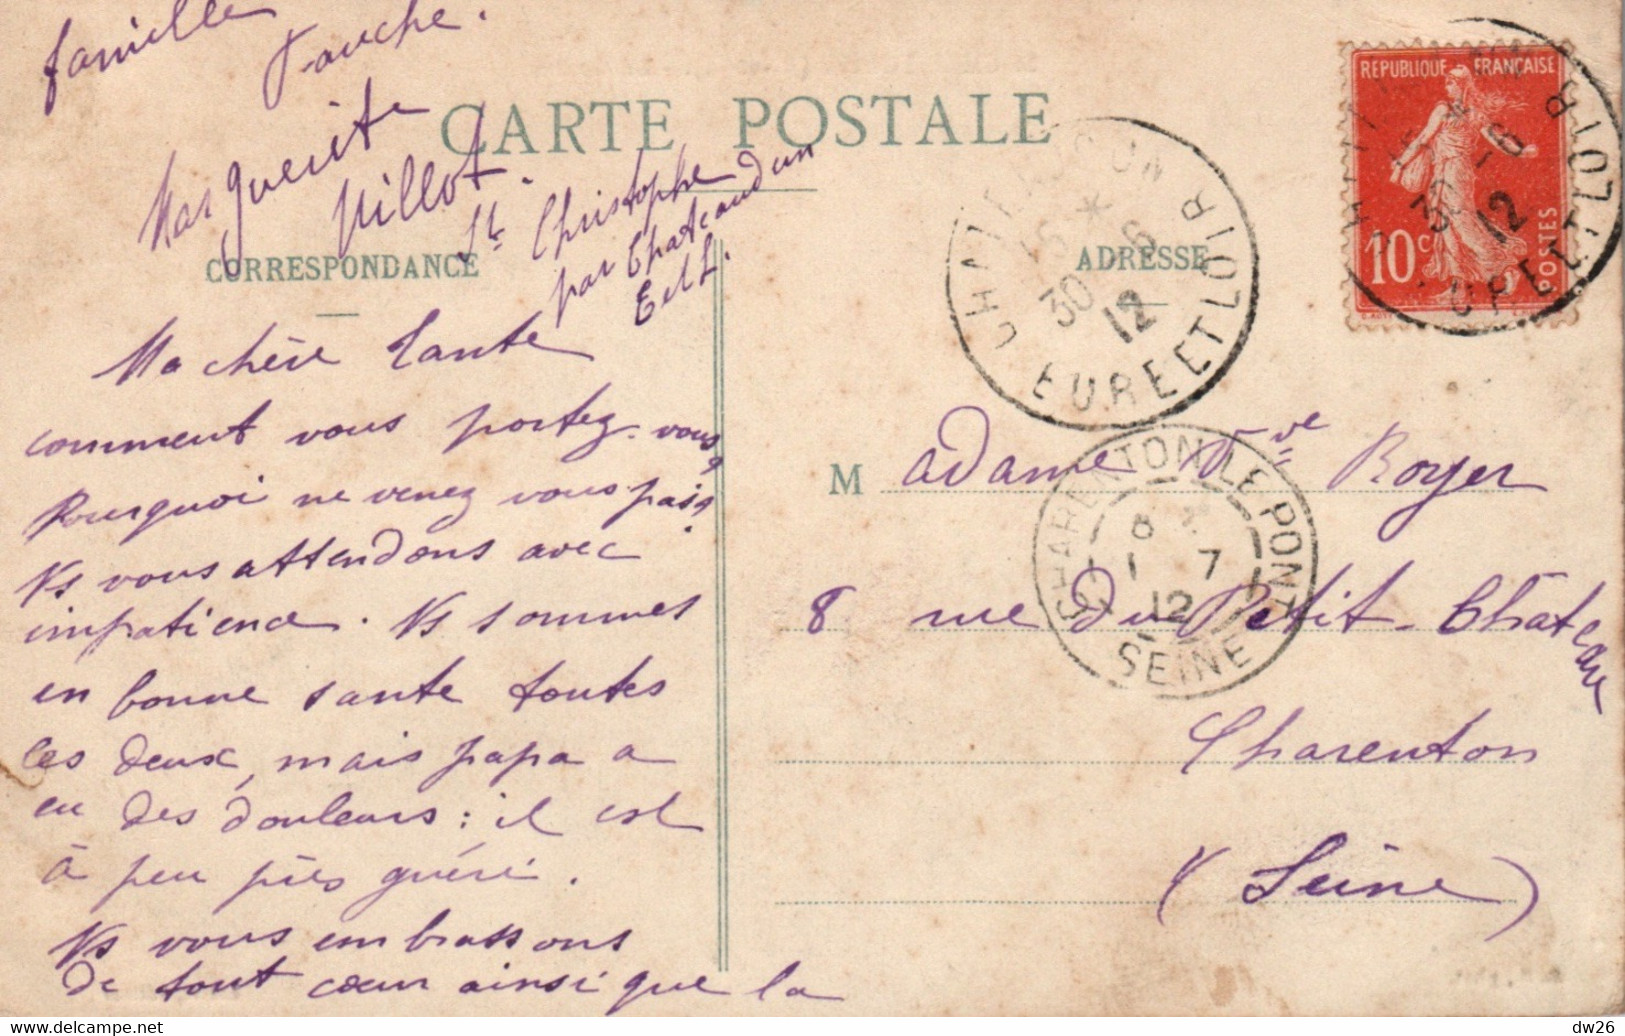 famille
Fauche.
Marguerite
Villot.
St Christophe
par Chateaudun
E et L.
CARTE POSTALE
CORRESPONDANCE
ADRESSE
Ma chère Tante
comment vous portez-vous?
Pourquoi ne venez vous pas?
Ns vous attendons avec
impatience. Ns sommes
en bonne sante toutes
les deux, mais papa a
eu des douleurs: il est
à peu près guéri.
Ns vous embrassons
de tout cœur ainsi que la
REPUBLIQUE FRANÇAISE
10c
POSTES
CHATEAUDUN
30 -6
12
EURE ET LOIR
30 -6
12
EURE ET LOIR
CHARENTON LE PONT
8
1 7
12
SEINE
M adame Vve Royer
8 rue du Petit-Château
Charenton
(Seine)
delcampe.net
dw26